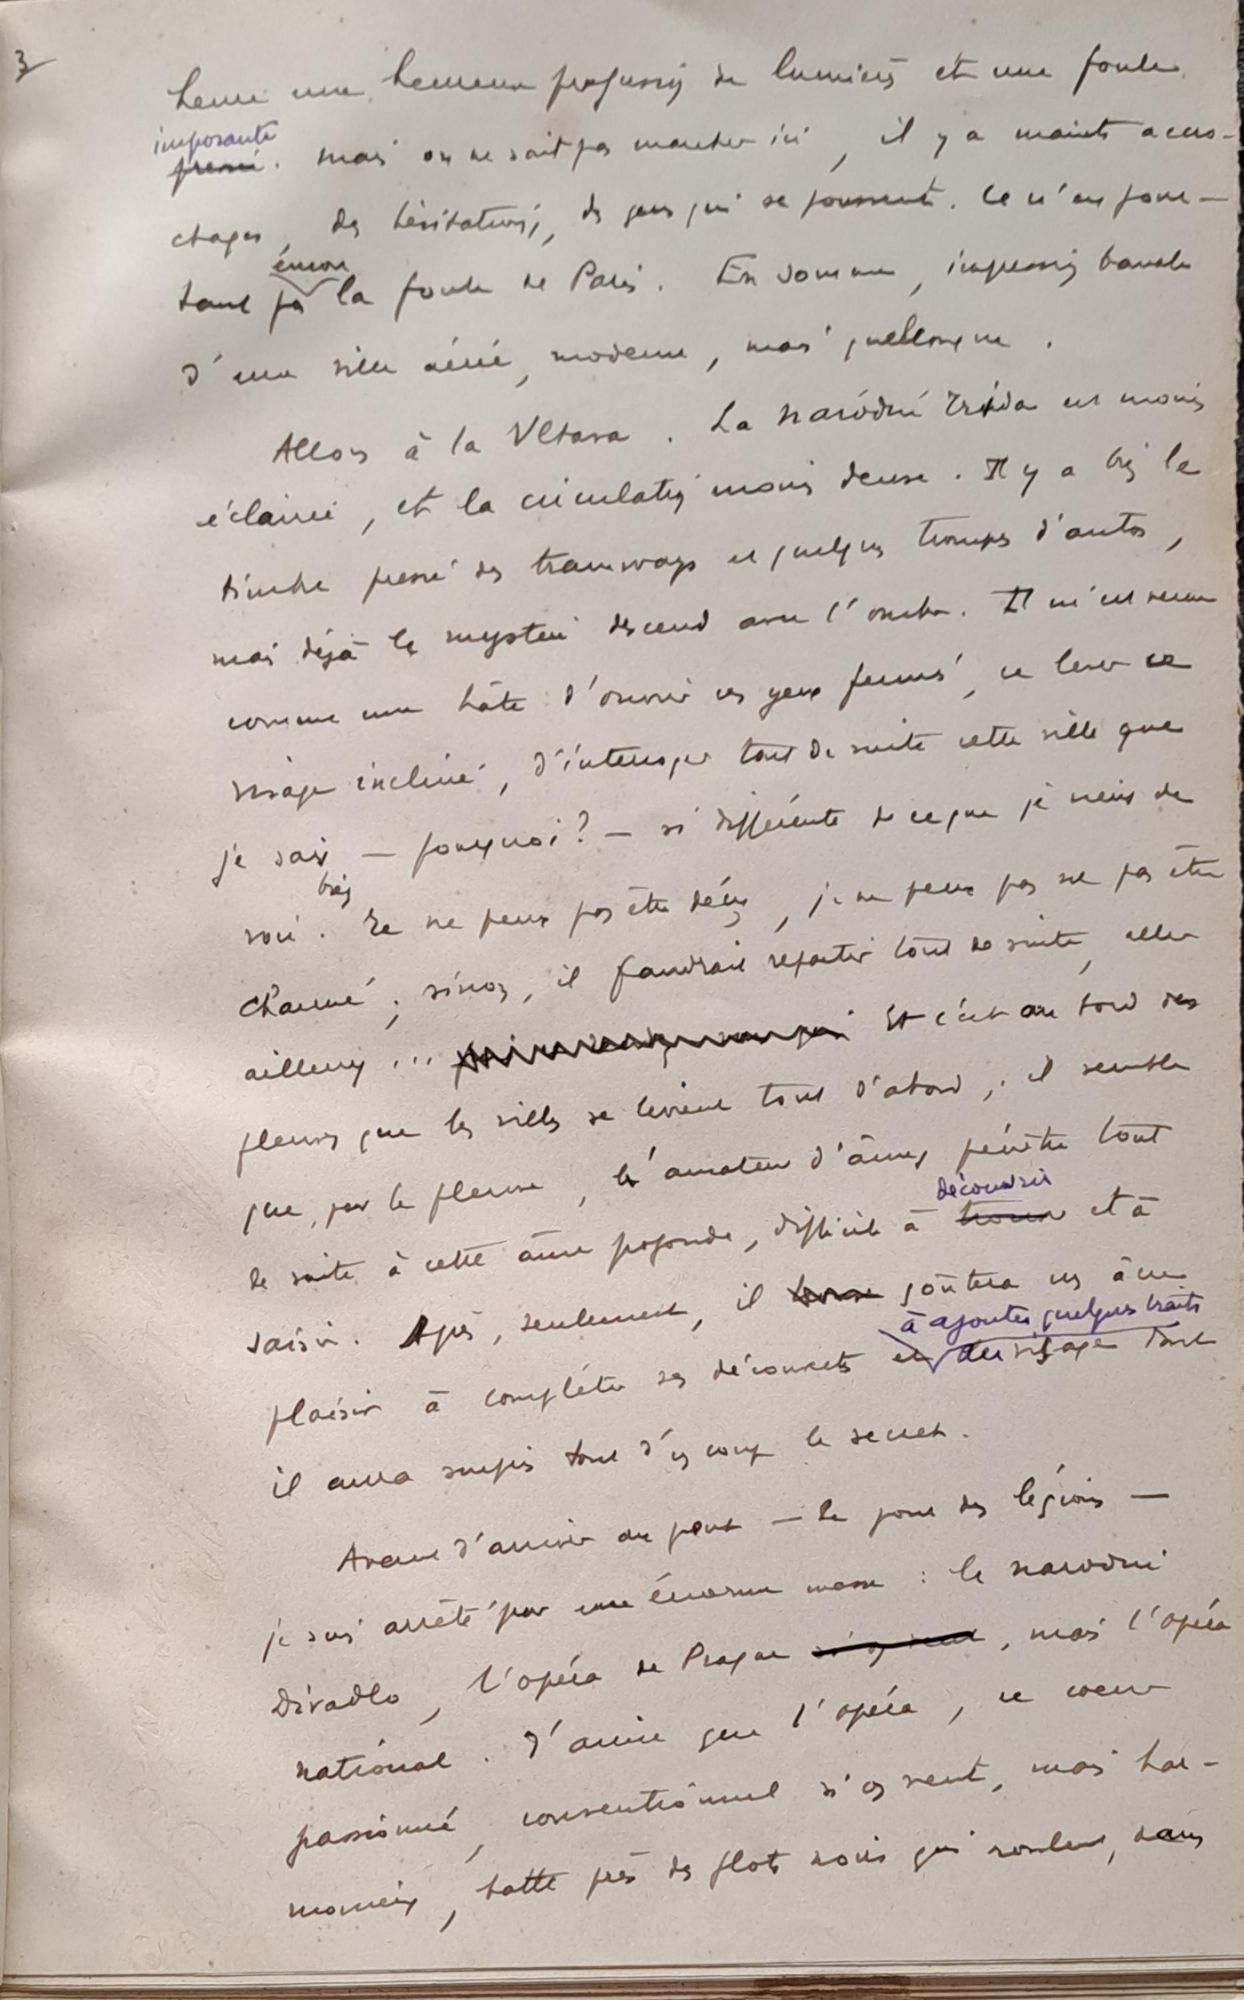 3
heure une heureuse profusion de lumières et une foule
imposante
pressé. Mais on ne sait pas marcher ici, il y a maints accro-
chages, des hésitations, des gens qui se poussent. Ce n'est pour-
encore
tant pas la foule de Paris. En somme, impression banale
d'une ville aérée, moderne, mais quelconque.
Allons à la Vltava. La Národní Třída est moins
éclairée, et la circulation moins dense. Il y a bien le
timbre pressé des tramways et quelques trompes d'autos,
mais déjà le mystère descend avec l'ombre. Il m'est venu
comme une hâte d'ouvrir ces yeux fermés, de lever ce
visage incliné, d'interroger tout de suite cette ville que
je sais — pourquoi? — si différente de ce que je viens de
bien
voir. Je ne peux pas être déçu, je ne peux pas ne pas être
charmé; sinon, il faudrait repartir tout de suite, aller
ailleurs... Et c'est au bord des
fleuves que les villes se livrent tout d'abord; il semble
que, par le fleuve, l'amateur d'âmes pénètre tout
découvrir
de suite à cette âme profonde, difficile à trouver et à
saisir. Après, seulement, il goûtera un âcre
à ajouter quelques traits
plaisir à compléter ses découvertes et au visage dont
il aura surpris tout d'un coup le secret.
Avant d'arriver au pont — le pont des légions —
je suis arrêté par une énorme masse : le Narodni
Divadlo, l'opéra de Prague si on veut, mais l'opéra
national. J'aime que l'opéra, ce coeur
passionné, conventionnel si on veut, mais har-
monieux, batte près des flots noirs qui roulent, dans